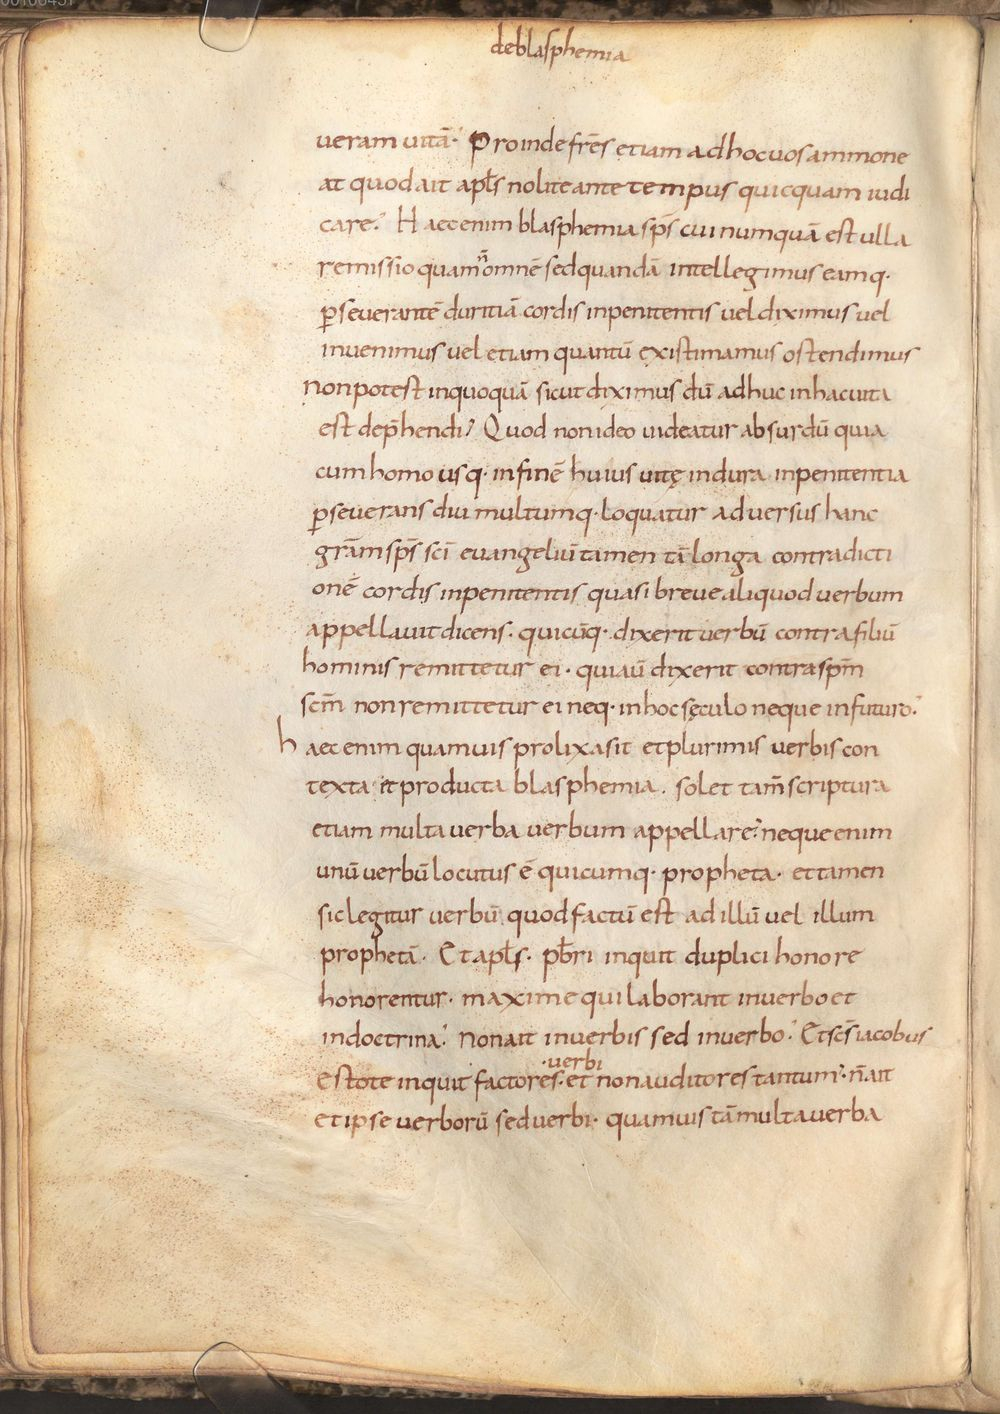 de blasphemia
ueram uitā. Proinde fr̄es etiam ad hoc uos ammone
at quod ait apl̄s nolite ante tempus quicquam iudi
care. Haec enim blasphemia sp̄s cui numquā est ulla
remissio quam n̄ omnē sed quandā intellegimus eamq·
p̱seuerantē duritiā cordis inpenitentis uel diximus uel
inuenimus uel etiam quantū existimamus ostendimus
non potest in quoquā sicut diximus dū adhuc in hac uita
est dep̄hendi. Quod non ideo uideatur absurdū quia
cum homo usq· in finē huius uitę in dura inpenitentia
p̱seuerans diu multumq· loquatur aduersus hanc
gr̄am sp̄s sc̄i euangeliū tamen tā longa contradicti
onē cordis inpenitentis quasi breue aliquod uerbum
appellauit dicens· quicūq· dixerit uerbū contra filiū
hominis remittetur ei· qui aū dixerit contra sp̄m
sc̄m non remittetur ei neq· in hoc sęculo neque in futuro.
haec enim quamuis prolixa sit et plurimis uerbis con
texta et producta blasphemia. solet tam̄ scriptura
etiam multa uerba uerbum appellare. neque enim
unū uerbū locutus ē quicumq· propheta· et tamen
sic legitur uerbū quod factū est ad illū uel illum
prophetā· Et apl̄s· pb̄ri inquit duplici honore
honorentur· maxime qui laborant in uerbo et
in doctrina. Non ait in uerbis sed in uerbo. Et sc̄s iacobus
·uerbi
estote inquit factores· et non auditores tantum· n̄ ait
et ipse uerborū sed uerbi· quamuis tā multa uerba